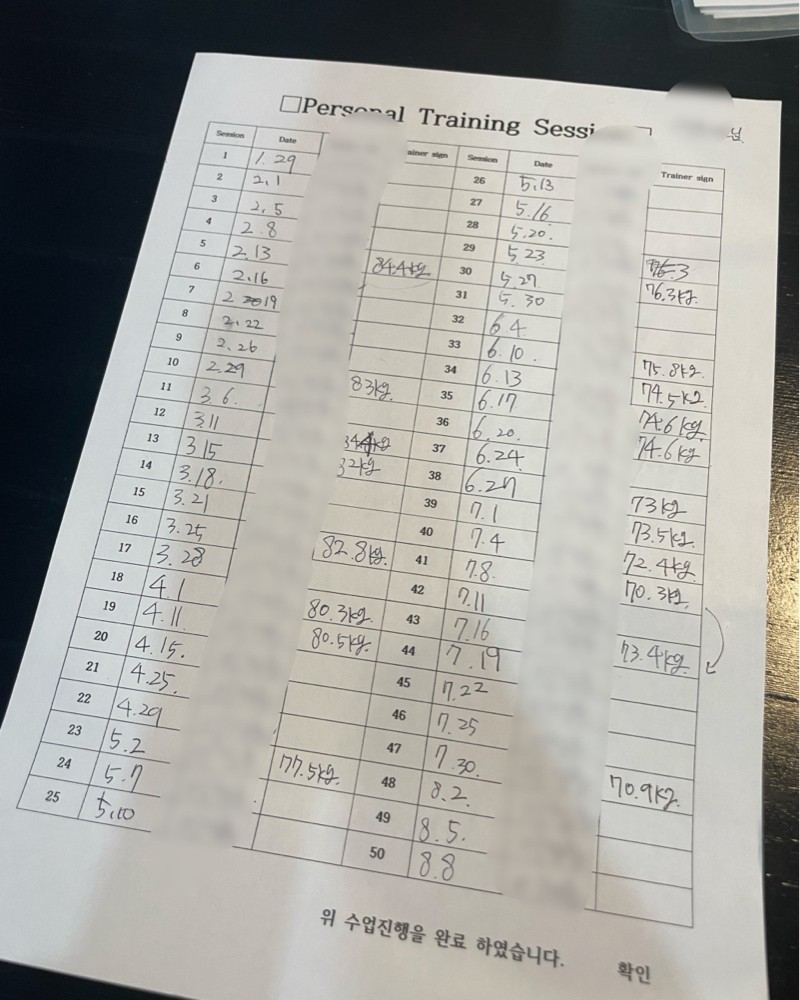 □Personal Training Sessi
님
Session Date Trainer sign Session Date Trainer sign
1 1.29 26 5.13
2 2.1 27 5.16
3 2.5 28 5.20.
4 2.8 29 5.23 76.3
5 2.13 84.4kg 30 5.27 76.3kg.
6 2.16 31 5.30
7 2.19 32 6.4
8 2.22 33 6.10. 75.8kg.
9 2.26 34 6.13 74.5kg
10 2.29 83kg. 35 6.17 74.6kg.
11 3.6. 36 6.20. 74.6kg
12 3.11 37 6.24
13 3.15 32kg 38 6.27 73kg
14 3.18. 39 7.1 73.5kg.
15 3.21 40 7.4 72.4kg
16 3.25 82.8kg. 41 7.8. 70.3kg.
17 3.28 42 7.11
18 4.1 80.3kg. 43 7.16 73.4kg.
19 4.11 80.5kg. 44 7.19
20 4.15. 45 7.22
21 4.25. 46 7.25
22 4.29 47 7.30. 70.9kg.
23 5.2 77.5kg. 48 8.2.
24 5.7 49 8.5.
25 5.10 50 8.8
위 수업진행을 완료 하였습니다. 확인